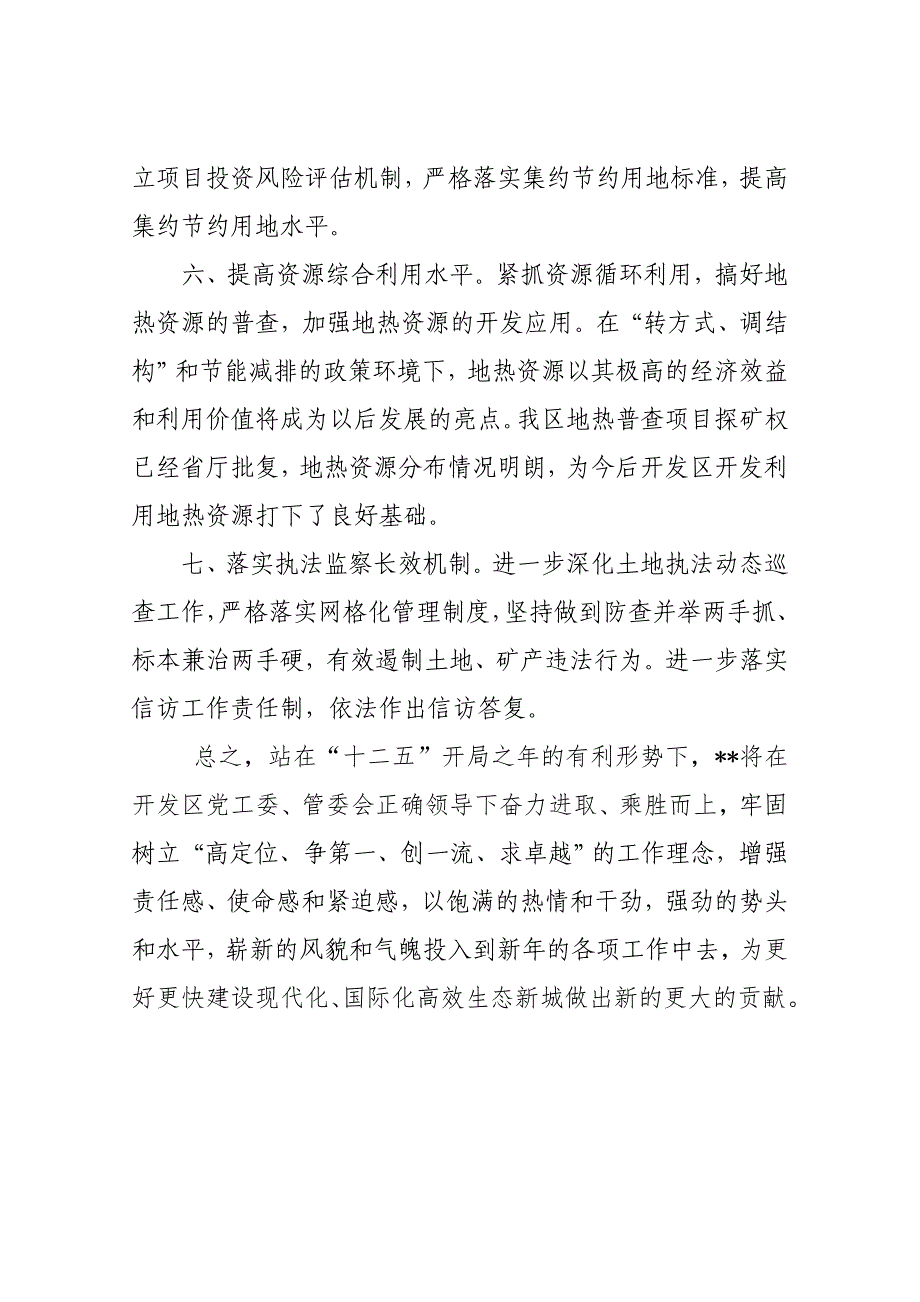 立项目投资风险评估机制，严格落实集约节约用地标准，提高
集约节约用地水平。
六、提高资源综合利用水平。紧抓资源循环利用，搞好地
热资源的普查，加强地热资源的开发应用。在“转方式、调结
构”和节能减排的政策环境下，地热资源以其极高的经济效益
和利用价值将成为以后发展的亮点。我区地热普查项目探矿权
已经省厅批复，地热资源分布情况明朗，为今后开发区开发利
用地热资源打下了良好基础。
七、落实执法监察长效机制。进一步深化土地执法动态巡
查工作，严格落实网格化管理制度，坚持做到防查并举两手抓、
标本兼治两手硬，有效遏制土地、矿产违法行为。进一步落实
信访工作责任制，依法作出信访答复。
总之，站在“十二五”开局之年的有利形势下，**将在
开发区党工委、管委会正确领导下奋力进取、乘胜而上，牢固
树立“高定位、争第一、创一流、求卓越”的工作理念，增强
责任感、使命感和紧迫感，以饱满的热情和干劲，强劲的势头
和水平，崭新的风貌和气魄投入到新年的各项工作中去，为更
好更快建设现代化、国际化高效生态新城做出新的更大的贡献。